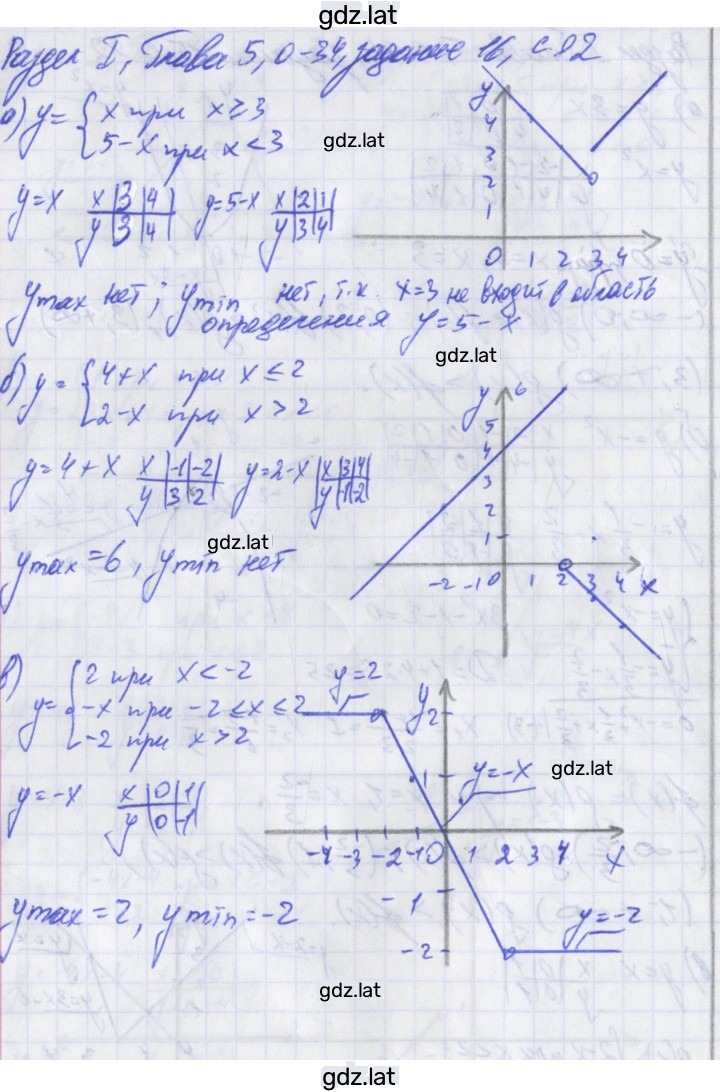 gdz.lat
Раздел I, Глава 5, О-34, задание 16, с 82
а) y = { x при x ≥ 3
5-x при x < 3
gdz.lat
y=x x|3|4| y=5-x x|2|1|
y|3|4| y|3|4|
y 4 3 2 1
0 1 2 3 4
ymax нет; ymin нет, т.к. x=3 не входит в область
определения y=5-x
gdz.lat
б) y = { 4+x при x ≤ 2
2-x при x > 2
y=4+x x|-1|-2| y=2-x x|3|4|
y|3|2| y|-1|-2|
y 6 5 4 3 2 1
-2 -1 0 1 2 3 4 x
gdz.lat
ymax=6, ymin нет
в) y = { 2 при x < -2
-x при -2 ≤ x ≤ 2
-2 при x > 2
y=2
y 2
1 y=-x
gdz.lat
y=-x x|0|1|
y|0|-1|
-4 -3 -2 -1 0 1 2 3 4 x
-1
-2
y=-2
ymax=2, ymin=-2
gdz.lat
gdz.lat